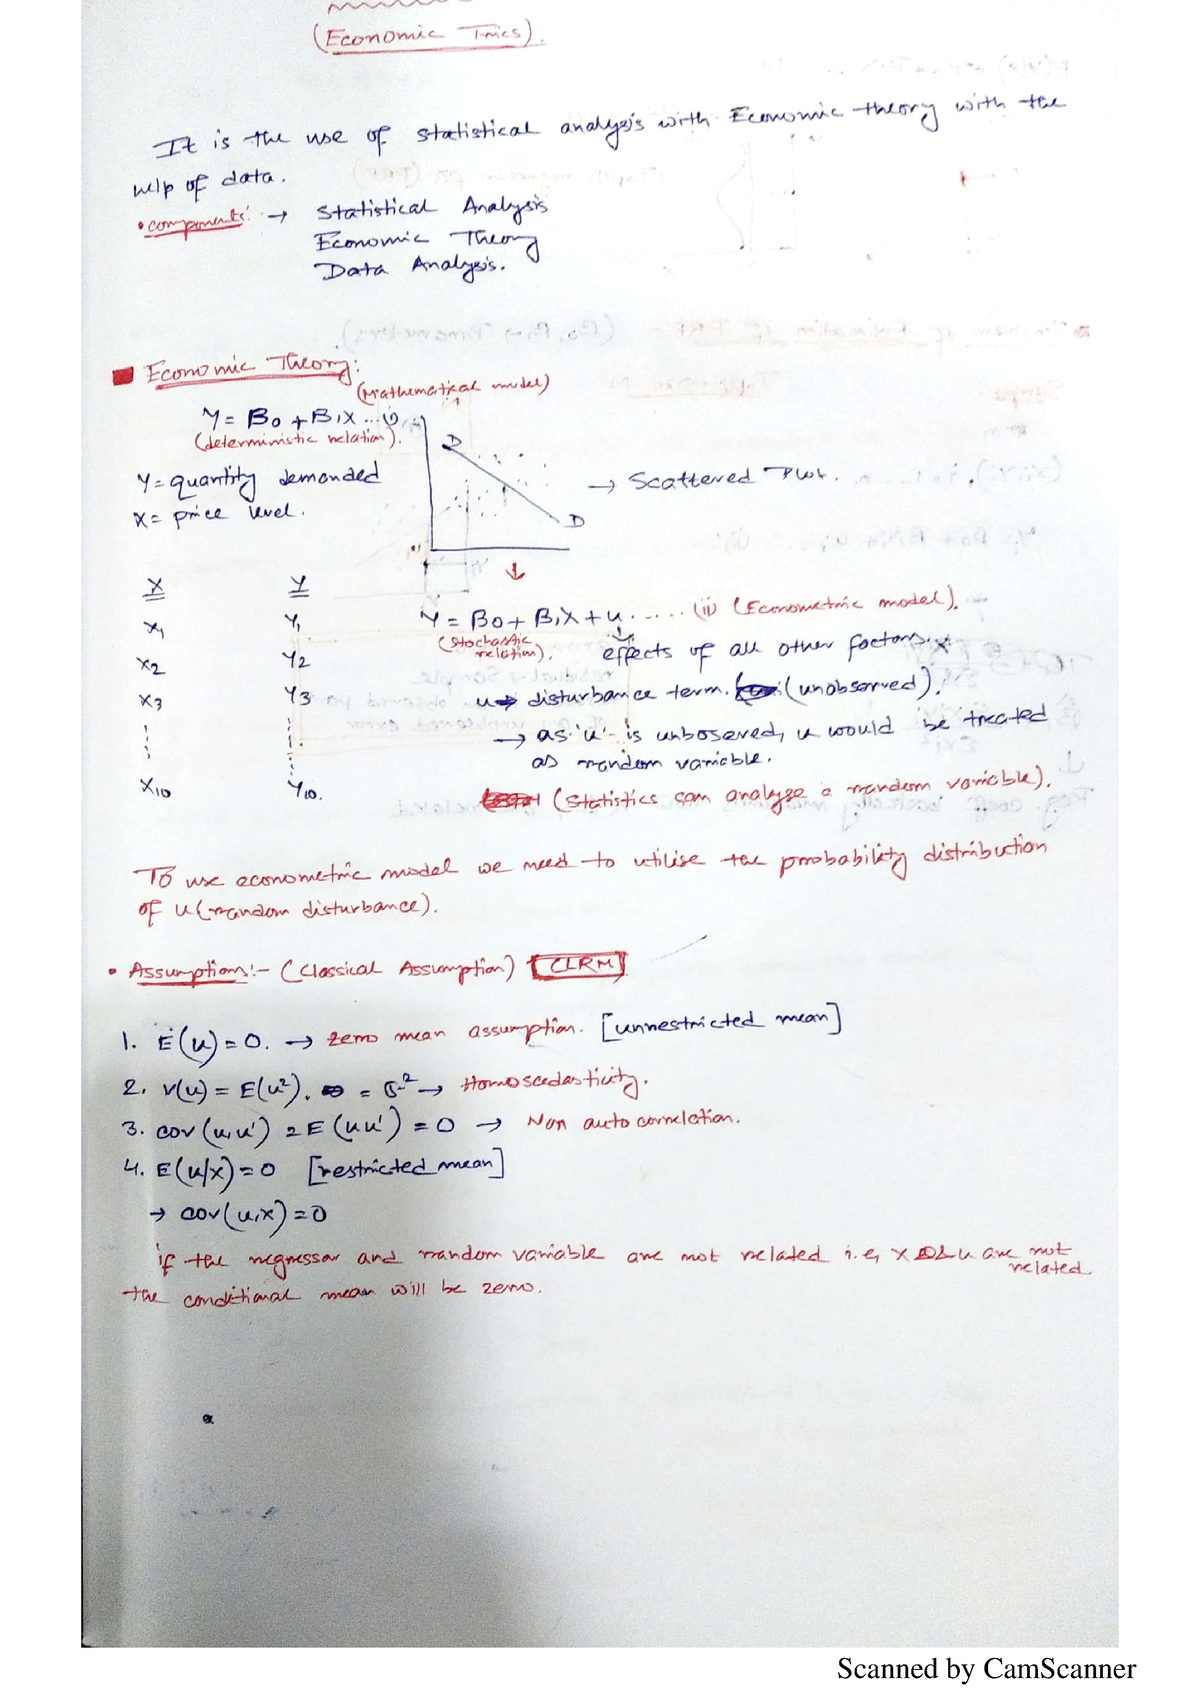 (Economic Trics).
It is the use of statistical analysis with Economic theory with the
help of data.
• components: → Statistical Analysis
Economic Theory
Data Analysis.
Economic Theory:
(Mathematical model)
Y = B0 + B1X ...(i)
(deterministic relation).
D
Y = quantity demanded
X = price level.
→ Scattered Plot.
D
X Y
X1 Y1
Y = B0 + B1X + u ..... (ii) (Econometric model).
(stochastic relation).
effects of all other factors.
X2 Y2
X3 Y3
u → disturbance term. (unobserved).
→ as 'u' is unboserved, u would be treated
as random variable.
X10 Y10.
(statistics can analyse a random variable).
To use econometric model we need to utilise the probability distribution
of u (random disturbance).
• Assumptions:- (Classical Assumption) CLRM
1. E(u) = 0. → zero mean assumption. [unrestricted mean]
2. V(u) = E(u²). = σ² → Homoscedasticity.
3. cov(u,u') = E(uu') = 0 → Non autocorrelation.
4. E(u/x) = 0 [restricted mean]
→ cov(u,x) = 0
if the regressor and random variable are not related i.e, x & u are not related
the conditional mean will be zero.
Scanned by CamScanner